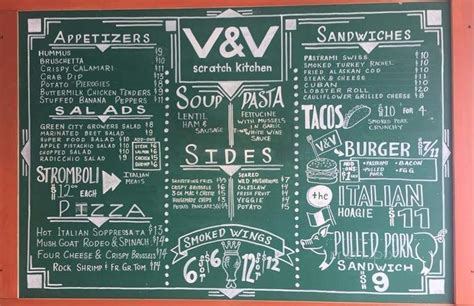 APPETIZERS
HUMMUS $9
BRUSCHETTA $9
CRISPY CALAMARI $11
CRAB DIP $13
POTATO PIEROGIES
BUTTERMILK CHICKEN TENDERS $9
STUFFED BANANA PEPPERS
SALADS
GREEN CITY GROWERS SALAD $8
MARINATED BEET SALAD
SUPER FOOD SALAD
APPLE PISTACHIO SALAD
CHOPPED SALAD
RADICCHIO SALAD $9
STROMBOLI
$12.00 EACH
ITALIAN
MEATS
PIZZA
HOT ITALIAN SOPPRESATTA $13
MUSH, GOAT RODEO & SPINACH $14
FOUR CHEESE & CRISPY BRUSSELS
ROCK SHRIMP & FR. GR. TOM $14
V&V
scratch kitchen
SOUP
LENTIL
HAM &
SAUSAGE
PASTA
FETTUCINE
WITH MUSSELS
IN GARLIC
WHITE WINE
SAUCE
SIDES
SWEETENED FRIES $3
CRISPY BRUSSELS $6
MAC & CHEESE
ROSEMARY CHIPS $3
POTATO PANCAKES
SEARED
WILD MUSHROOM $7
COLESLAW
FRESH FRUIT
VEGGIE
POTATO $5
SMOKED WINGS
6 FOR $6
12 FOR $12
SANDWICHES
PASTRAMI SWISS $10
SMOKED TURKEY RACHEL $10
FRIED ALASKAN COD
STEAK & CHEESE
CUBAN
LOBSTER ROLL
CAULIFLOWER GRILLED CHEESE $8
TACOS
$10 FOR 4
SMOKED PORK
CRUNCHY
V&V
BURGER
PASTRAMI
PULLED
PORK
BACON
EGG
the
ITALIAN
HOAGIE $11
PULLED PORK
SANDWICH
$9